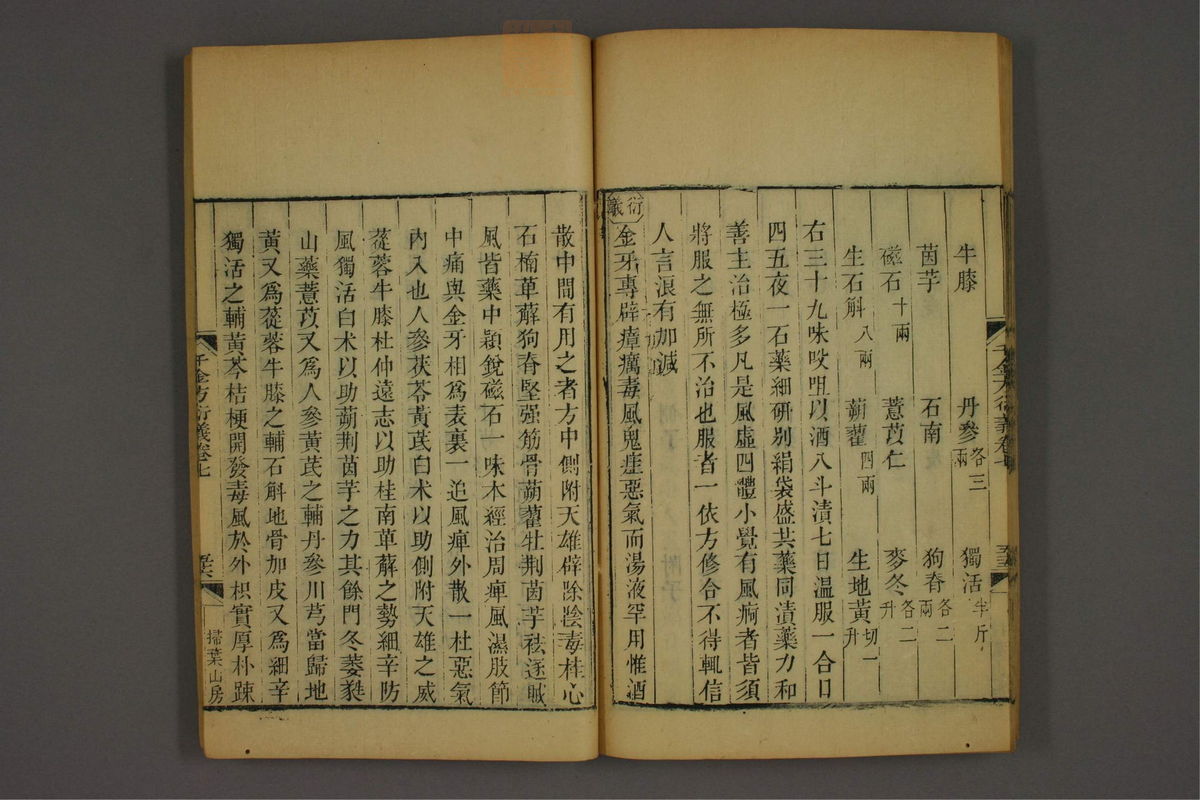 牛膝 丹參各三兩 獨活半斤
茵芋 石南 狗脊各二兩
磁石十兩 薏苡仁 麥冬各二升
生石斛八兩 蒴藋四兩 生地黃切一升
右三十九味㕮咀以酒八斗漬七日温服一合日
四五夜一石藥細研别絹袋盛共藥同漬藥力和
善主治極多凡是風虛四體小覺有風痾者皆須
將服之無所不治也服者一依方修合不得輒信
人言浪有加鍼
衍義 金牙專辟瘴癘毒風鬼疰惡氣而湯液罕用惟酒
散中間有用之者方中側附天雄辟除陰毒桂心
石楠萆薢狗脊堅强筋骨蒴藋牡荆茵芋祛逐賊
風皆藥中穎銳磁石一味本經治周痺風濕肢節
中痛與金牙相爲表裏一追風痺外散一杜惡氣
內入也人參茯苓黃芪白术以助側附天雄之威
蓯蓉牛膝杜仲遠志以助桂南萆薢之勢細辛防
風獨活白术以助蒴荆茵芋之力其餘門冬萎蕤
山藥薏苡又爲人參黃芪之輔丹參川芎當歸地
黃又爲蓯蓉牛膝之輔石斛地骨加皮又爲細辛
獨活之輔黃芩桔梗開發毒風於外枳實厚朴踈
千金方衍義卷七
掃葉山房